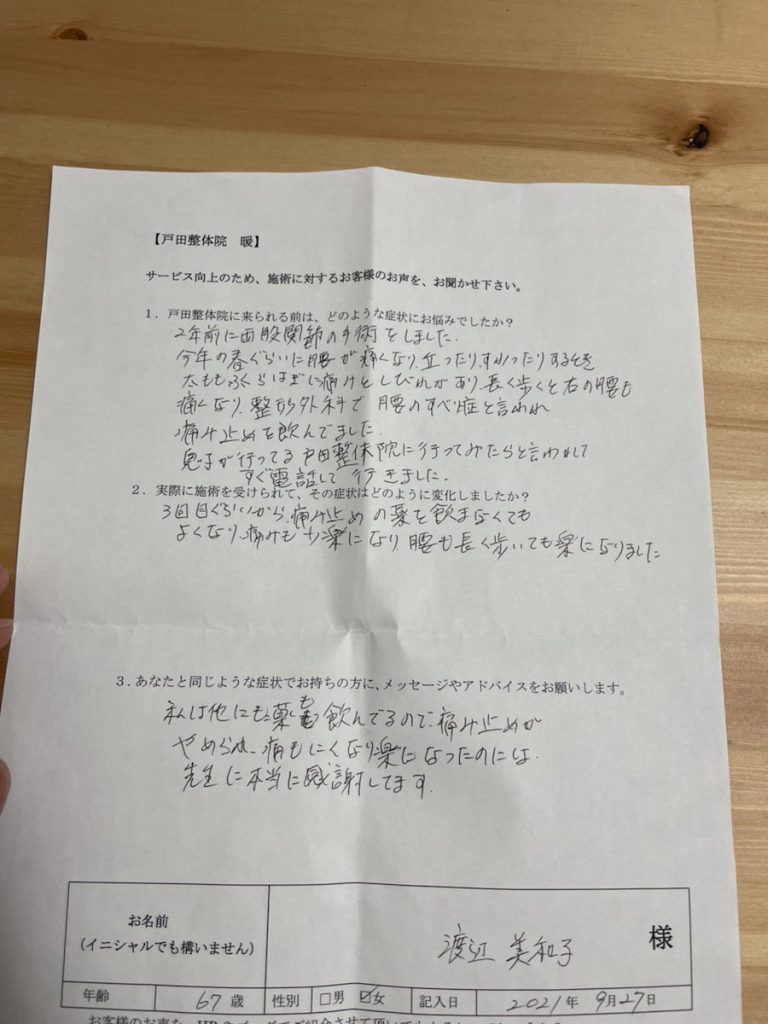 【戸田整体院　暖】
サービス向上のため、施術に対するお客様のお声を、お聞かせ下さい。
1．戸田整体院に来られる前は、どのような症状にお悩みでしたか？
2年前に両股関節の手術をしました.
今年の春ぐらいに腰が痛くなり.立ったりすわったりするとき
太ももふくらはぎに痛みとしびれがあり.長く歩くと右の腰も
痛くなり.整形外科で 腰のすべり症と言われ
痛み止めを飲んでました.
息子が行ってる戸田整体院に行ってみたらと言われて
すぐ電話して行きました.
2．実際に施術を受けられて、その症状はどのように変化しましたか？
3回目ぐらいから.痛み止めの薬を飲まなくても
よくなり.痛みも 楽になり.腰も長く歩いても楽になりました
3．あなたと同じような症状でお持ちの方に、メッセージやアドバイスをお願いします。
私は他にも薬も飲んでるので.痛み止めが
やめられ.痛もにくなり楽になったのには.
先生に本当に感謝してます.
お名前
（イニシャルでも構いません）
渡辺 美和子 様
年齢 67歳 性別 □男 ☑女 記入日 2021年 9月27日